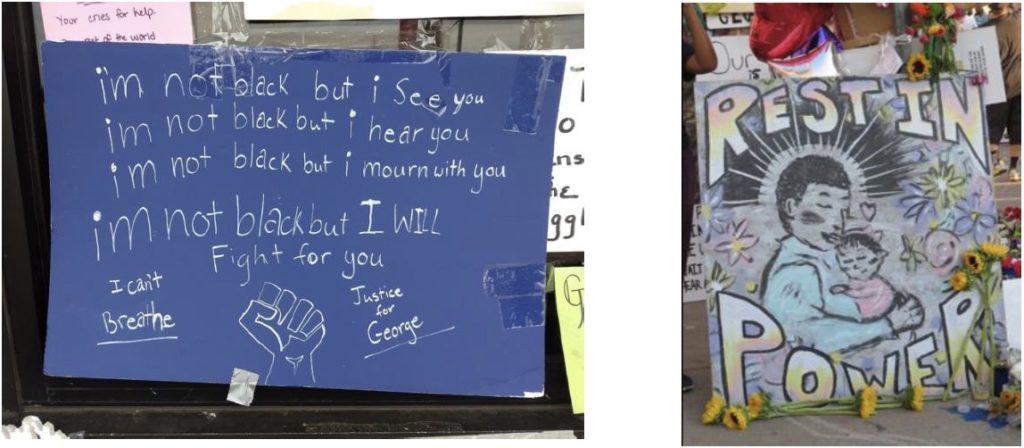 Your cries for help.
out of the world
im not black but i See you
im not black but i hear you
im not black but i mourn with you
im not black but I WILL
Fight for you
I can't
Breathe
Justice
for
George
REST IN
POWER